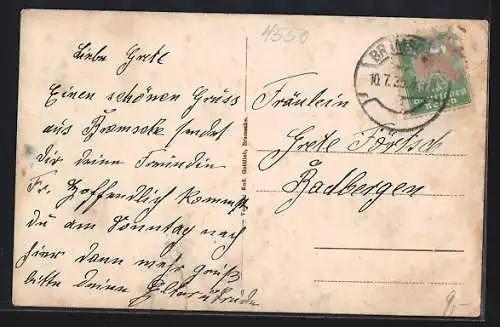 4550
Liebe Grete
Einen schönen Gruss
aus Bramsche sendet
dir deine Freundin
Fr. Hoffendlich kommst
du am Sonntag nach
hier dann mehr Gruß
bitte deine Eltern u Brüder
Verlag Rud. Gottlieb, Bramsche
BRAMSCHE
10.7.25
Deutsches
Reich
Fräulein
Grete Förtsch
Badbergen
9,-